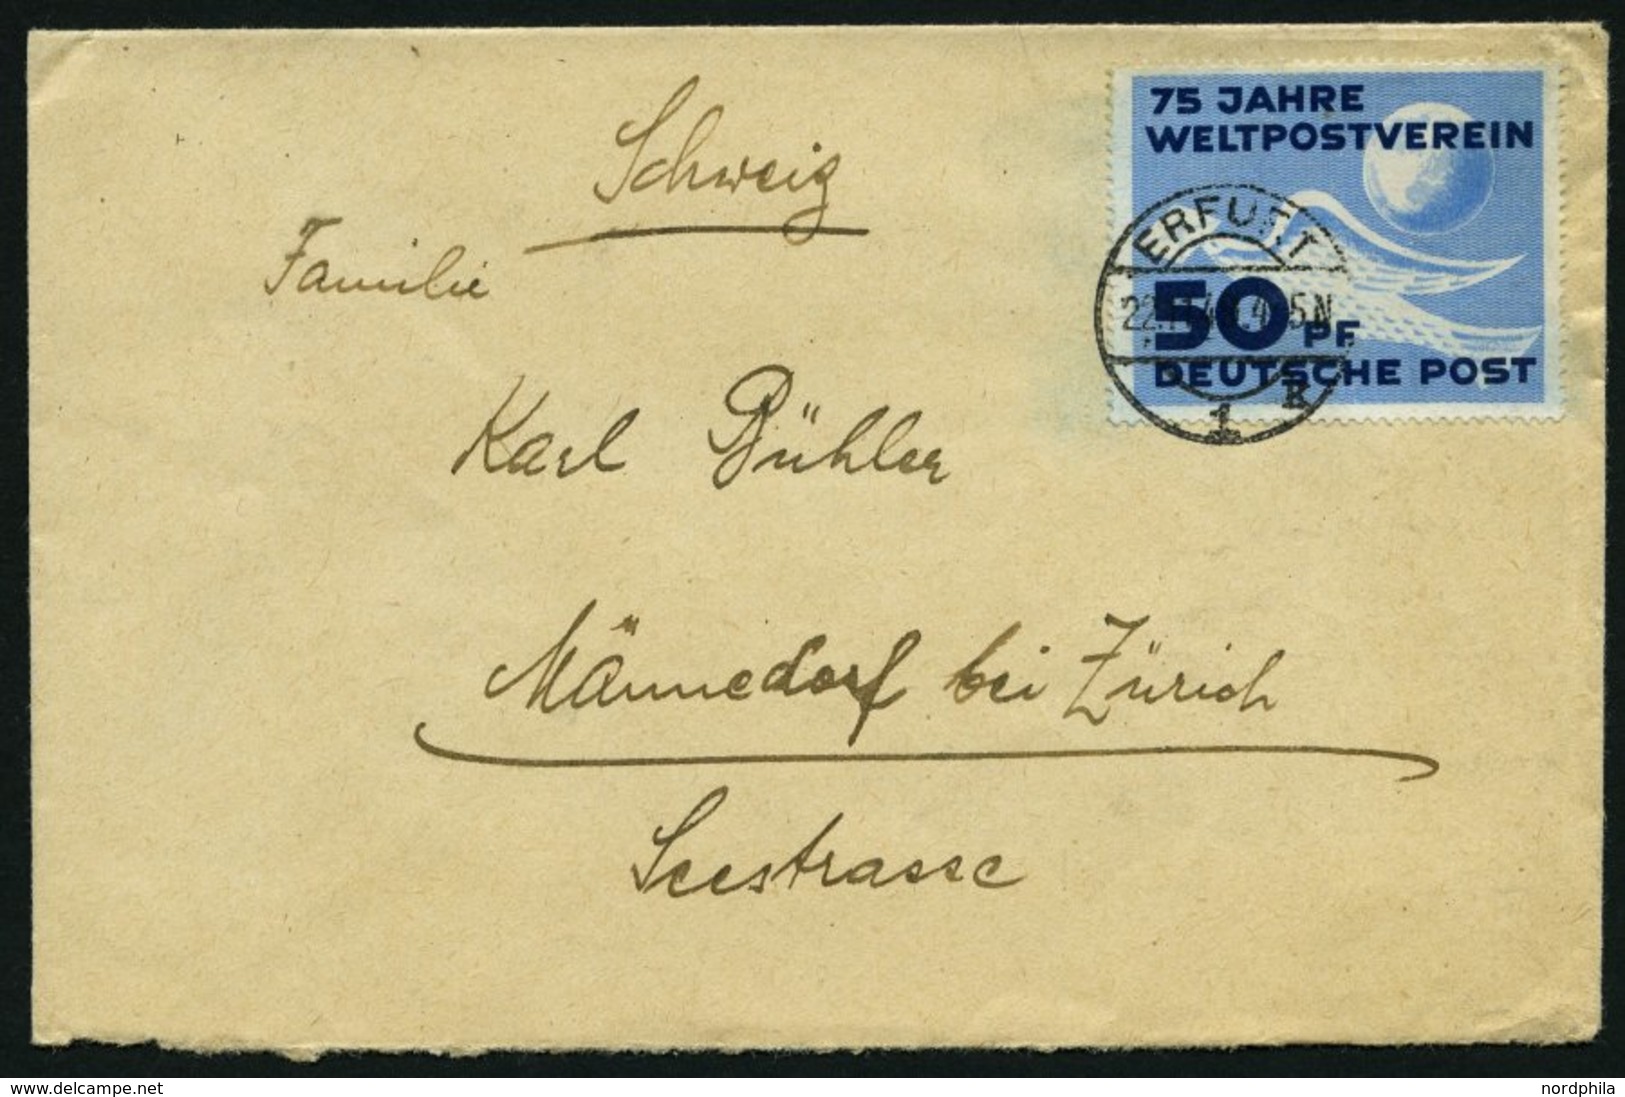 Schweiz
Familie
Karl Bühler
Männedorf bei Zürich
Seestrasse
75 JAHRE
WELTPOSTVEREIN
50 PF
DEUTSCHE POST
ERFURT
1
www.delcampe.net
nordphila